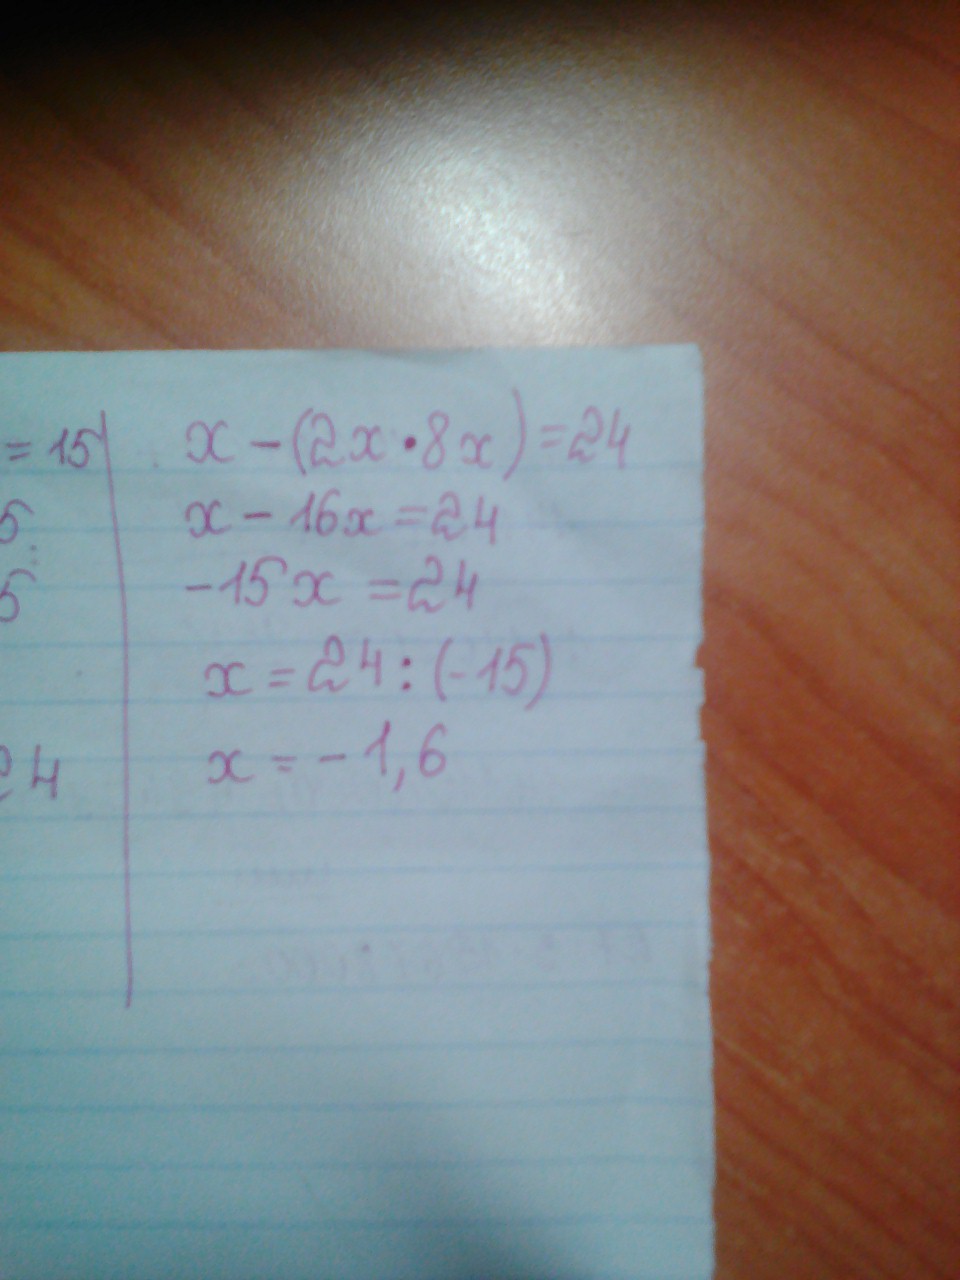 = 15
5
5
24
x - (2x · 8x) = 24
x - 16x = 24
-15x = 24
x = 24 : (-15)
x = - 1,6